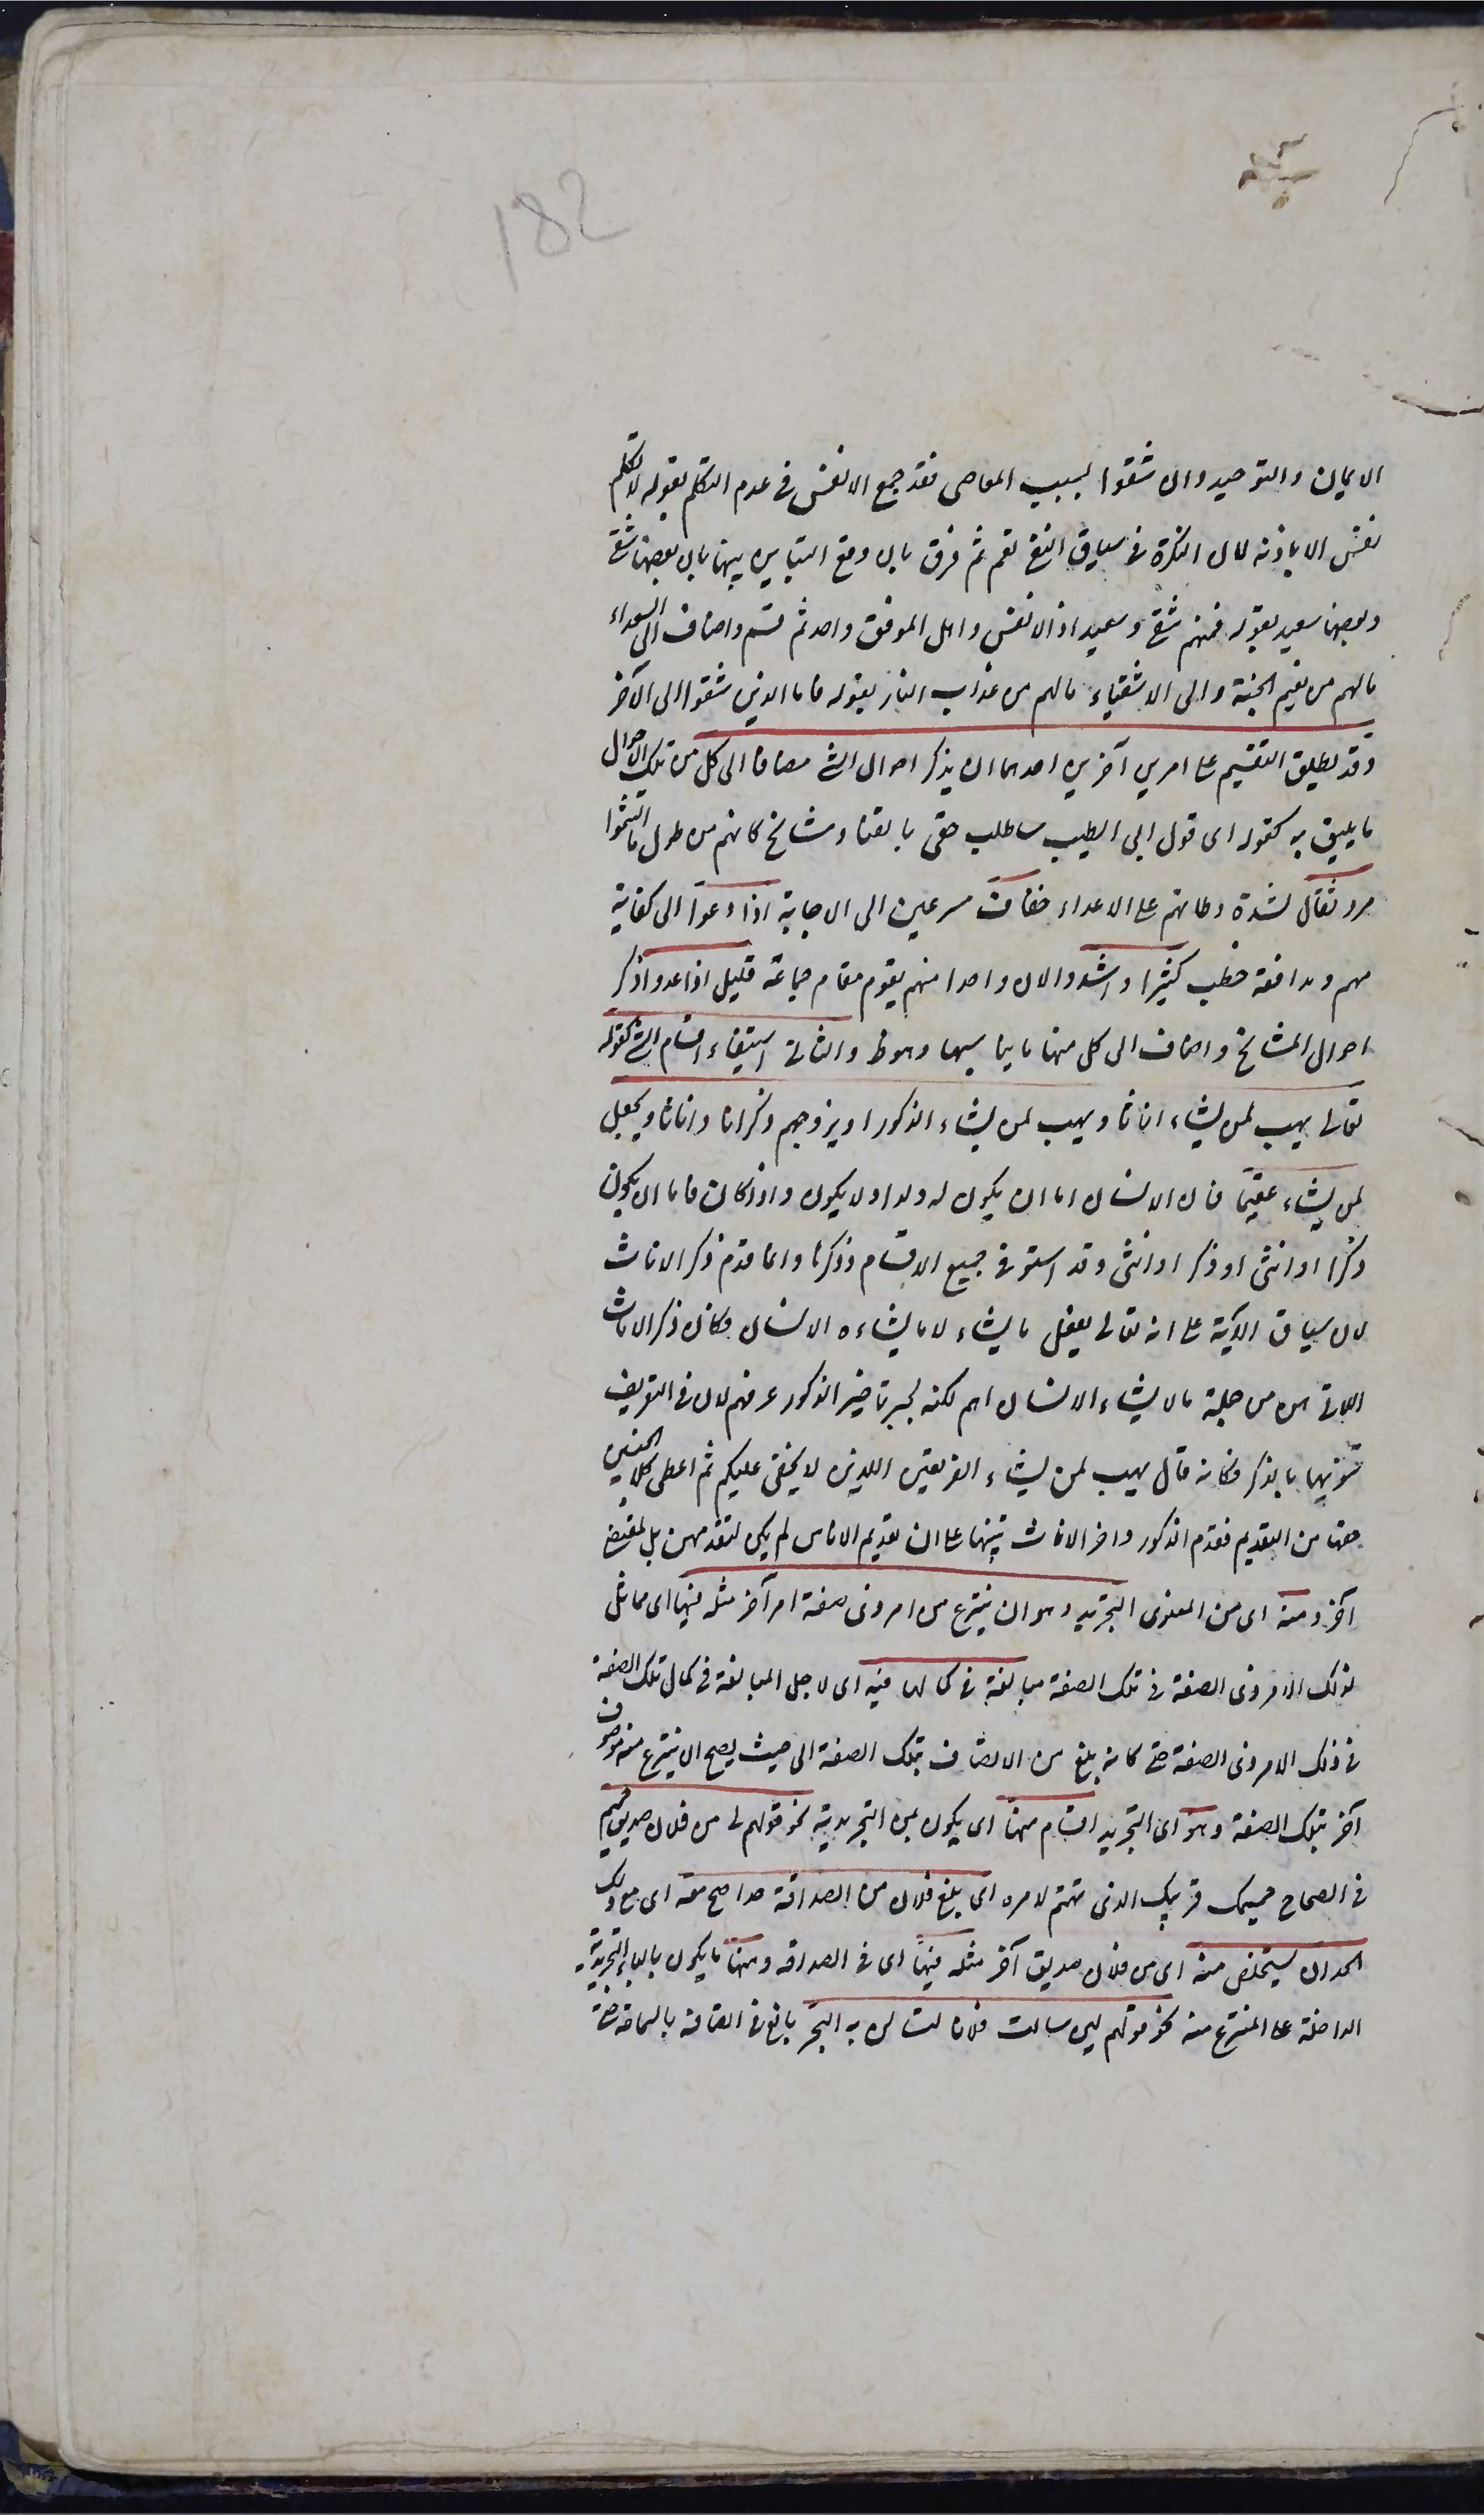 182
الايمان والتوحيد وان شقوا بسبب المعاصى فقد جمع الانفس فى عدم التكلم بقوله لا تكلم
نفس الا باذنه لان النكرة فى سياق النفى تعم ثم فرق بان وقع التباين بينها بان بعضها شقى
وبعضها سعيد بقوله فمنهم شقى وسعيد اذ الانفس واهل الموقف واحد ثم قسم واضاف الى السعداء
ما لهم من نعيم الجنة والى الاشقياء ما لهم من عذاب النار بقوله فاما الذين شقوا الى الآخر
وقد يطلق التقسيم على امرين آخرين احدهما ان يذكر احوال الشئ مضافا الى كل من تلك الاحوال
ما يليق به كقوله اى قول ابى الطيب ساطلب حقى بالقنا ومشايخ كانهم من طول ما التثموا
مرد ثقال لشدة وطاتهم على الاعداء خفاف مسرعين الى الاجابة اذا دعوا الى كفاية
مهم ومدافعة خطب كثيرا اذا شدوا لان واحدا منهم يقوم مقام جماعة قليل اذا عدوا ذكر
احوال المشايخ واضاف الى كل منها ما يناسبها وهو ظ والثانى استيفاء اقسام الشئ كقوله
تعالى يهب لمن يشاء اناثا ويهب لمن يشاء الذكور او يزوجهم ذكرانا واناثا ويجعل
لمن يشاء عقيما فان الانسان اما ان يكون له ولد او لا يكون واذا كان فاما ان يكون
ذكرا او انثى او ذكر او انثى وقد استوفى جميع الاقسام وذكرها وانما قدم ذكر الاناث
لان سياق الآية على انه تعالى يفعل ما يشاء لا ما يشاءه الانسان فكان ذكر الاناث
اللاتى هن من جملة ما لا يشاء الانسان اهم لكنه لجبر تاخير الذكور عرفهم لان فى التعريف
تنويها بالذكر فكانه قال يهب لمن يشاء الفريقين اللذين لا يخفى عليكم ثم اعطى كلا الجنسين
حقها من التقديم فقدم الذكور واخر الاناث تنبيها على ان تقديم الاناس لم يكن لتقدمهن بل لمقتض
آخر ومنه اى من المعنوى التجريد وهو ان ينتزع من امر ذى صفة امر آخر مثله فيها اى مماثل
لذلك الامر ذى الصفة فى تلك الصفة مبالغة فى كمالها فيه اى لاجل المبالغة فى كمال تلك الصفة
فى ذلك الامر ذى الصفة حتى كانه بلغ من الاتصاف بتلك الصفة الى حيث يصح ان ينتزع منه موصوف
آخر بتلك الصفة وهو اى التجريد اقسام منها اى يكون بمن التجريدية نحو قولهم لى من فلان صديق حميم
فى الصحاح حميمك قريبك الذى تهتم لامره اى بلغ فلان من الصداقة حدا صح معه اى مع ذلك
الحد ان يستخلص منه اى من فلان صديق آخر مثله فيها اى فى الصداقة ومنها ما يكون بالباء التجريدية
الداخلة على المنتزع منه نحو قولهم لئن سالت فلانا لتسالن به البحر بالغ فى اتصافه بالسماحة حتى